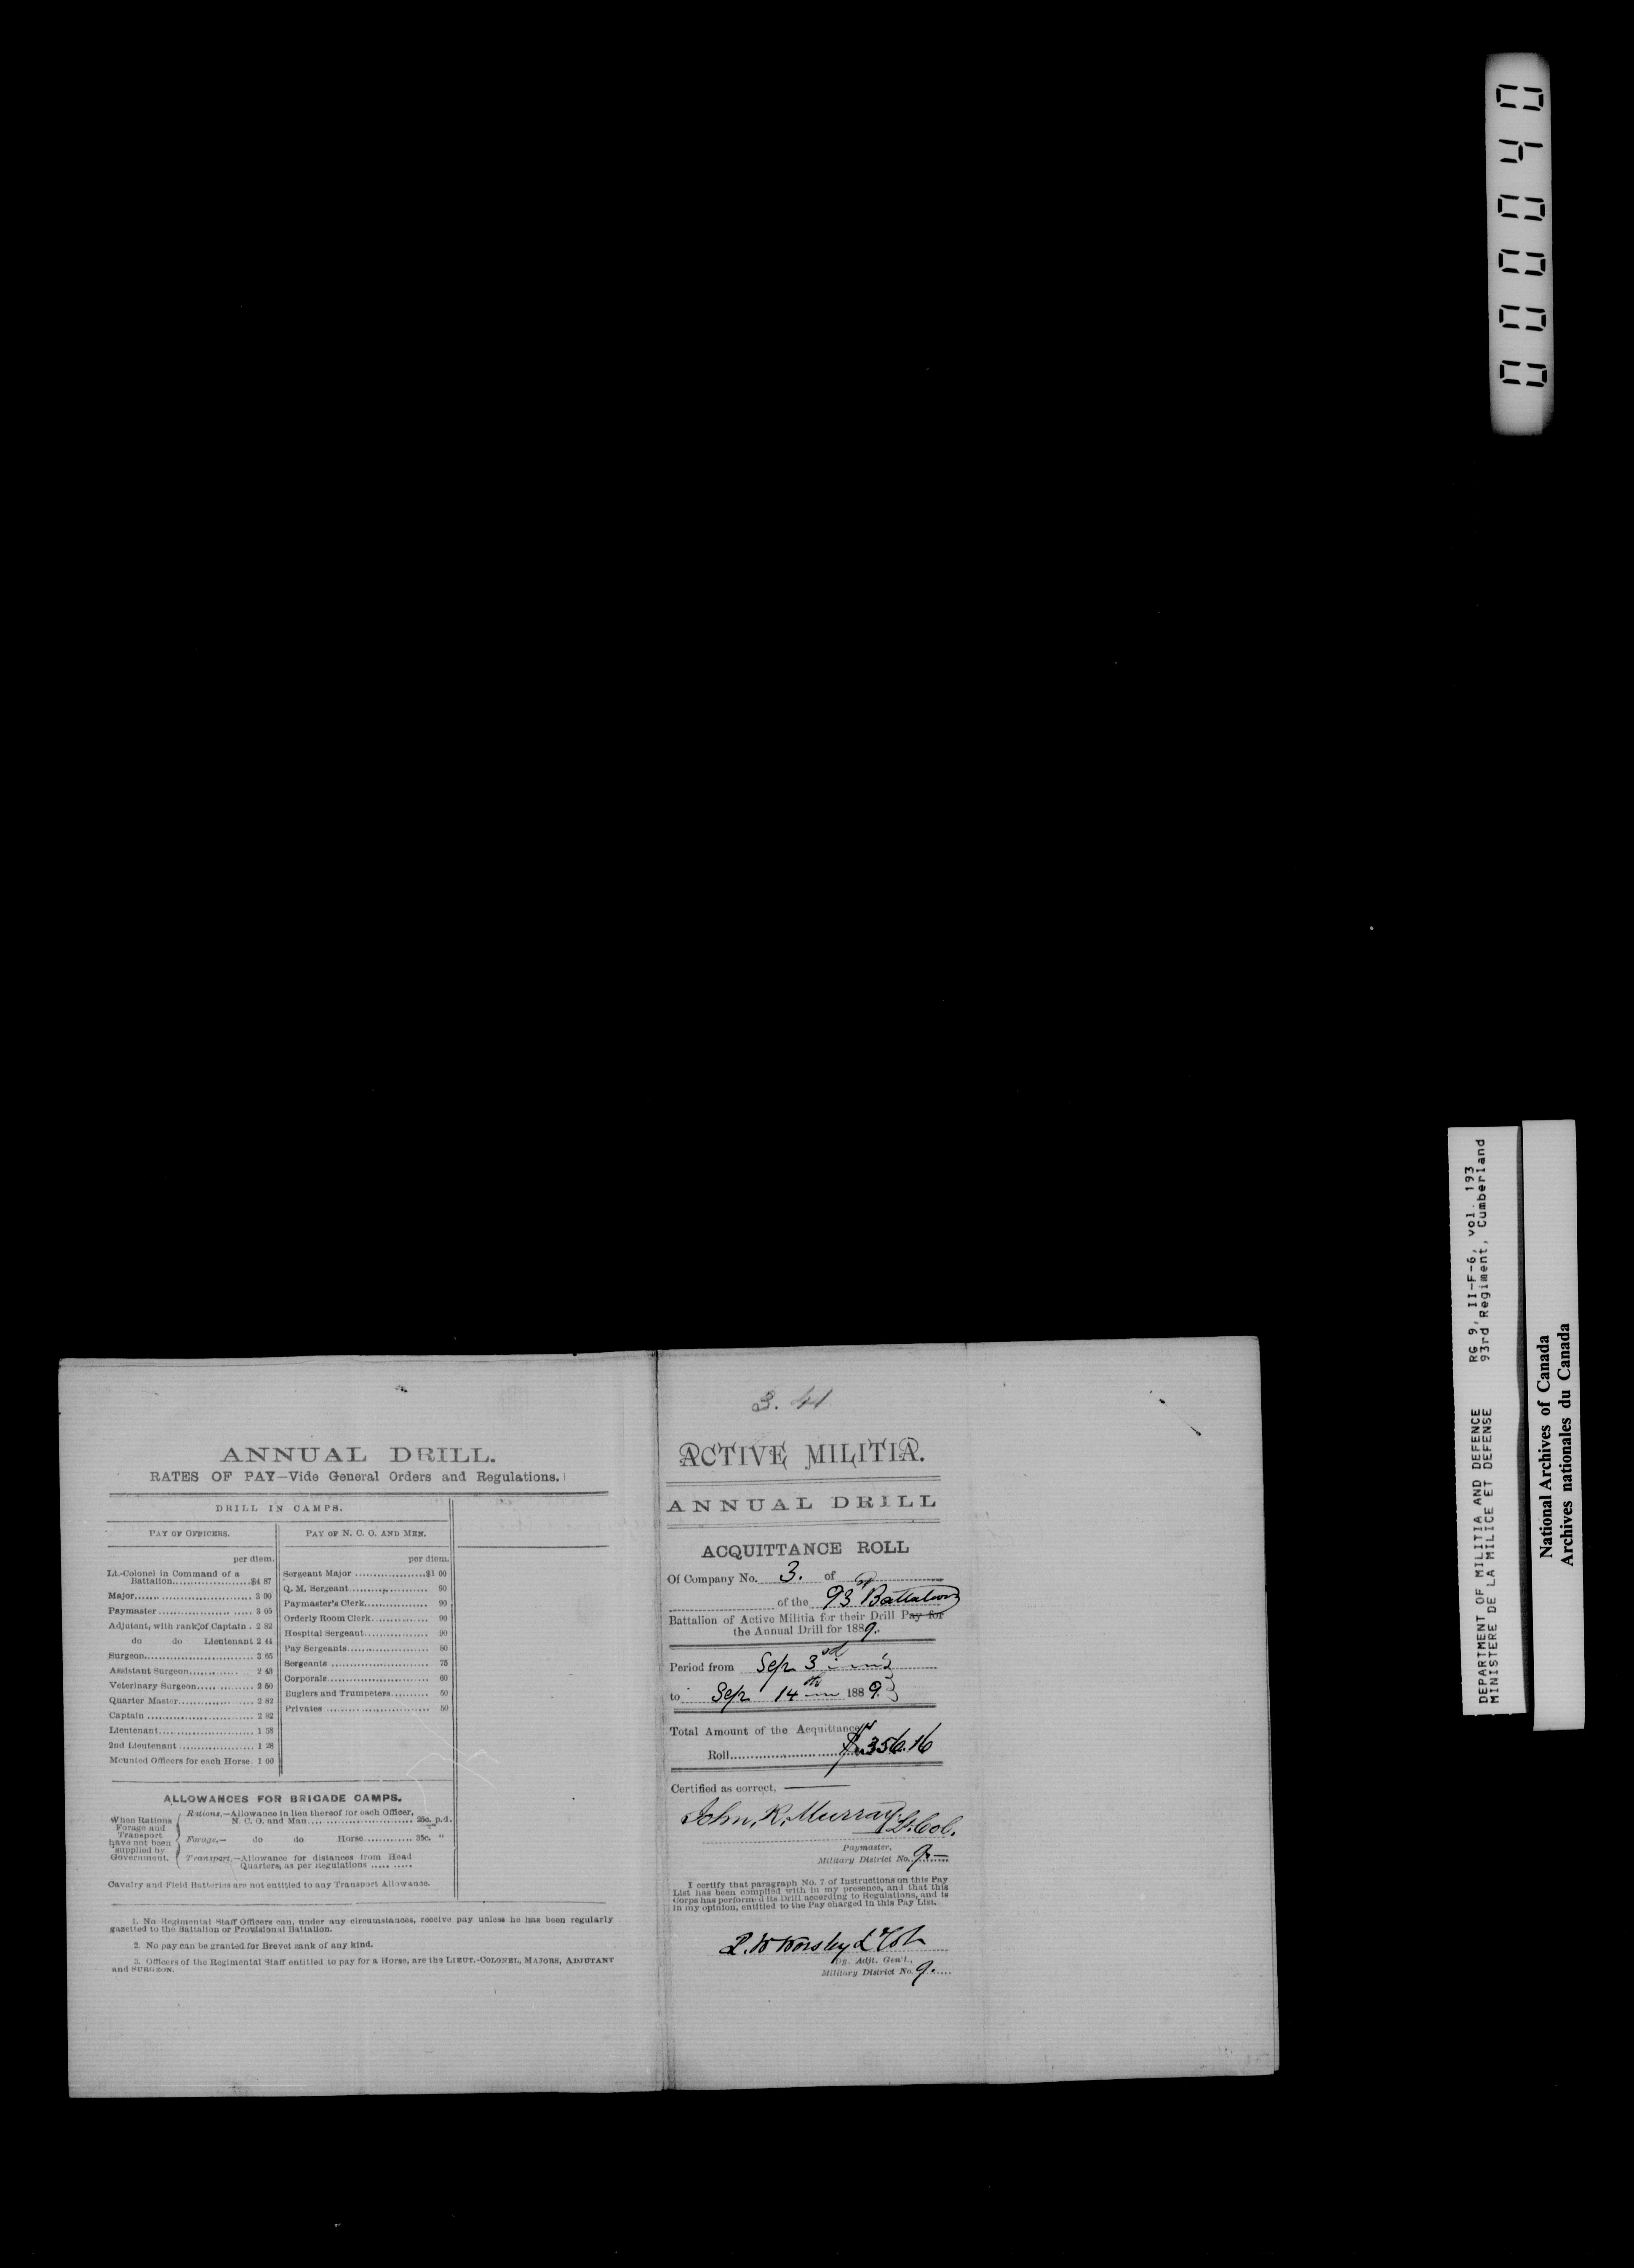 ANNUAL DRILL.
RATES OF PAY—Vide General Orders and Regulations.
DRILL IN CAMPS.
PAY OF OFFICERS.
per diem.
Lt.-Colonel in Command of a
Battalion..................$4 87
Major.............................. 3 90
Paymaster ........................ 3 05
Adjutant, with rank of Captain . 2 82
do do Lieutenant 2 44
Surgeon............................ 3 65
Assistant Surgeon............ 2 43
Veterinary Surgeon............ 2 50
Quarter Master.................. 2 82
Captain ............................ 2 82
Lieutenant........................ 1 58
2nd Lieutenant .................... 1 28
Mounted Officers for each Horse. 1 00
PAY OF N. C. O. AND MEN.
per diem.
Sergeant Major ..................$1 00
Q. M. Sergeant.................... 90
Paymaster's Clerk................ 90
Orderly Room Clerk.............. 90
Hospital Sergeant................ 90
Pay Sergeants.................... 80
Sergeants ........................ 75
Corporals.......................... 60
Buglers and Trumpeters.......... 50
Privates .......................... 50
ALLOWANCES FOR BRIGADE CAMPS.
When Rations
Forage and
Transport
have not been
supplied by
Government.
Rations.—Allowance in lieu thereof for each Officer,
N. C. O. and Man.......................... 25c. p.d.
Forage.— do do Horse............ 35c. "
Transport.—Allowance for distances from Head
Quarters, as per Regulations ..... .....
Cavalry and Field Batteries are not entitled to any Transport Allowance.
1. No Regimental Staff Officers can, under any circumstances, receive pay unless he has been regularly
gazetted to the Battalion or Provisional Battalion.
2. No pay can be granted for Brevet rank of any kind.
3. Officers of the Regimental Staff entitled to pay for a Horse, are the LIEUT.-COLONEL, MAJORS, ADJUTANT
and SURGEON.
3. 41
ACTIVE MILITIA.
ANNUAL DRILL
ACQUITTANCE ROLL
Of Company No. 3. of
of the 93rd Battalion
Battalion of Active Militia for their Drill Pay for
the Annual Drill for 1889.
Period from Sep 3rd
to Sep 14th 1889.
Total Amount of the Acquittance
Roll........................ $356.16
Certified as correct,
John, R. Murray. Lt. Col.
Paymaster,
Military District No. 9.
I certify that paragraph No. 7 of Instructions on this Pay
List has been complied with in my presence, and that this
Corps has performed its Drill according to Regulations, and is
in my opinion, entitled to the Pay charged in this Pay List.
P. W Worsley Lt Col
Dy. Adjt. Gen'l.,
Military District No. 9.
000040
DEPARTMENT OF MILITIA AND DEFENCE RG 9, II-F-6, vol. 193
MINISTERE DE LA MILICE ET DEFENSE 93rd Regiment, Cumberland
National Archives of Canada
Archives nationales du Canada